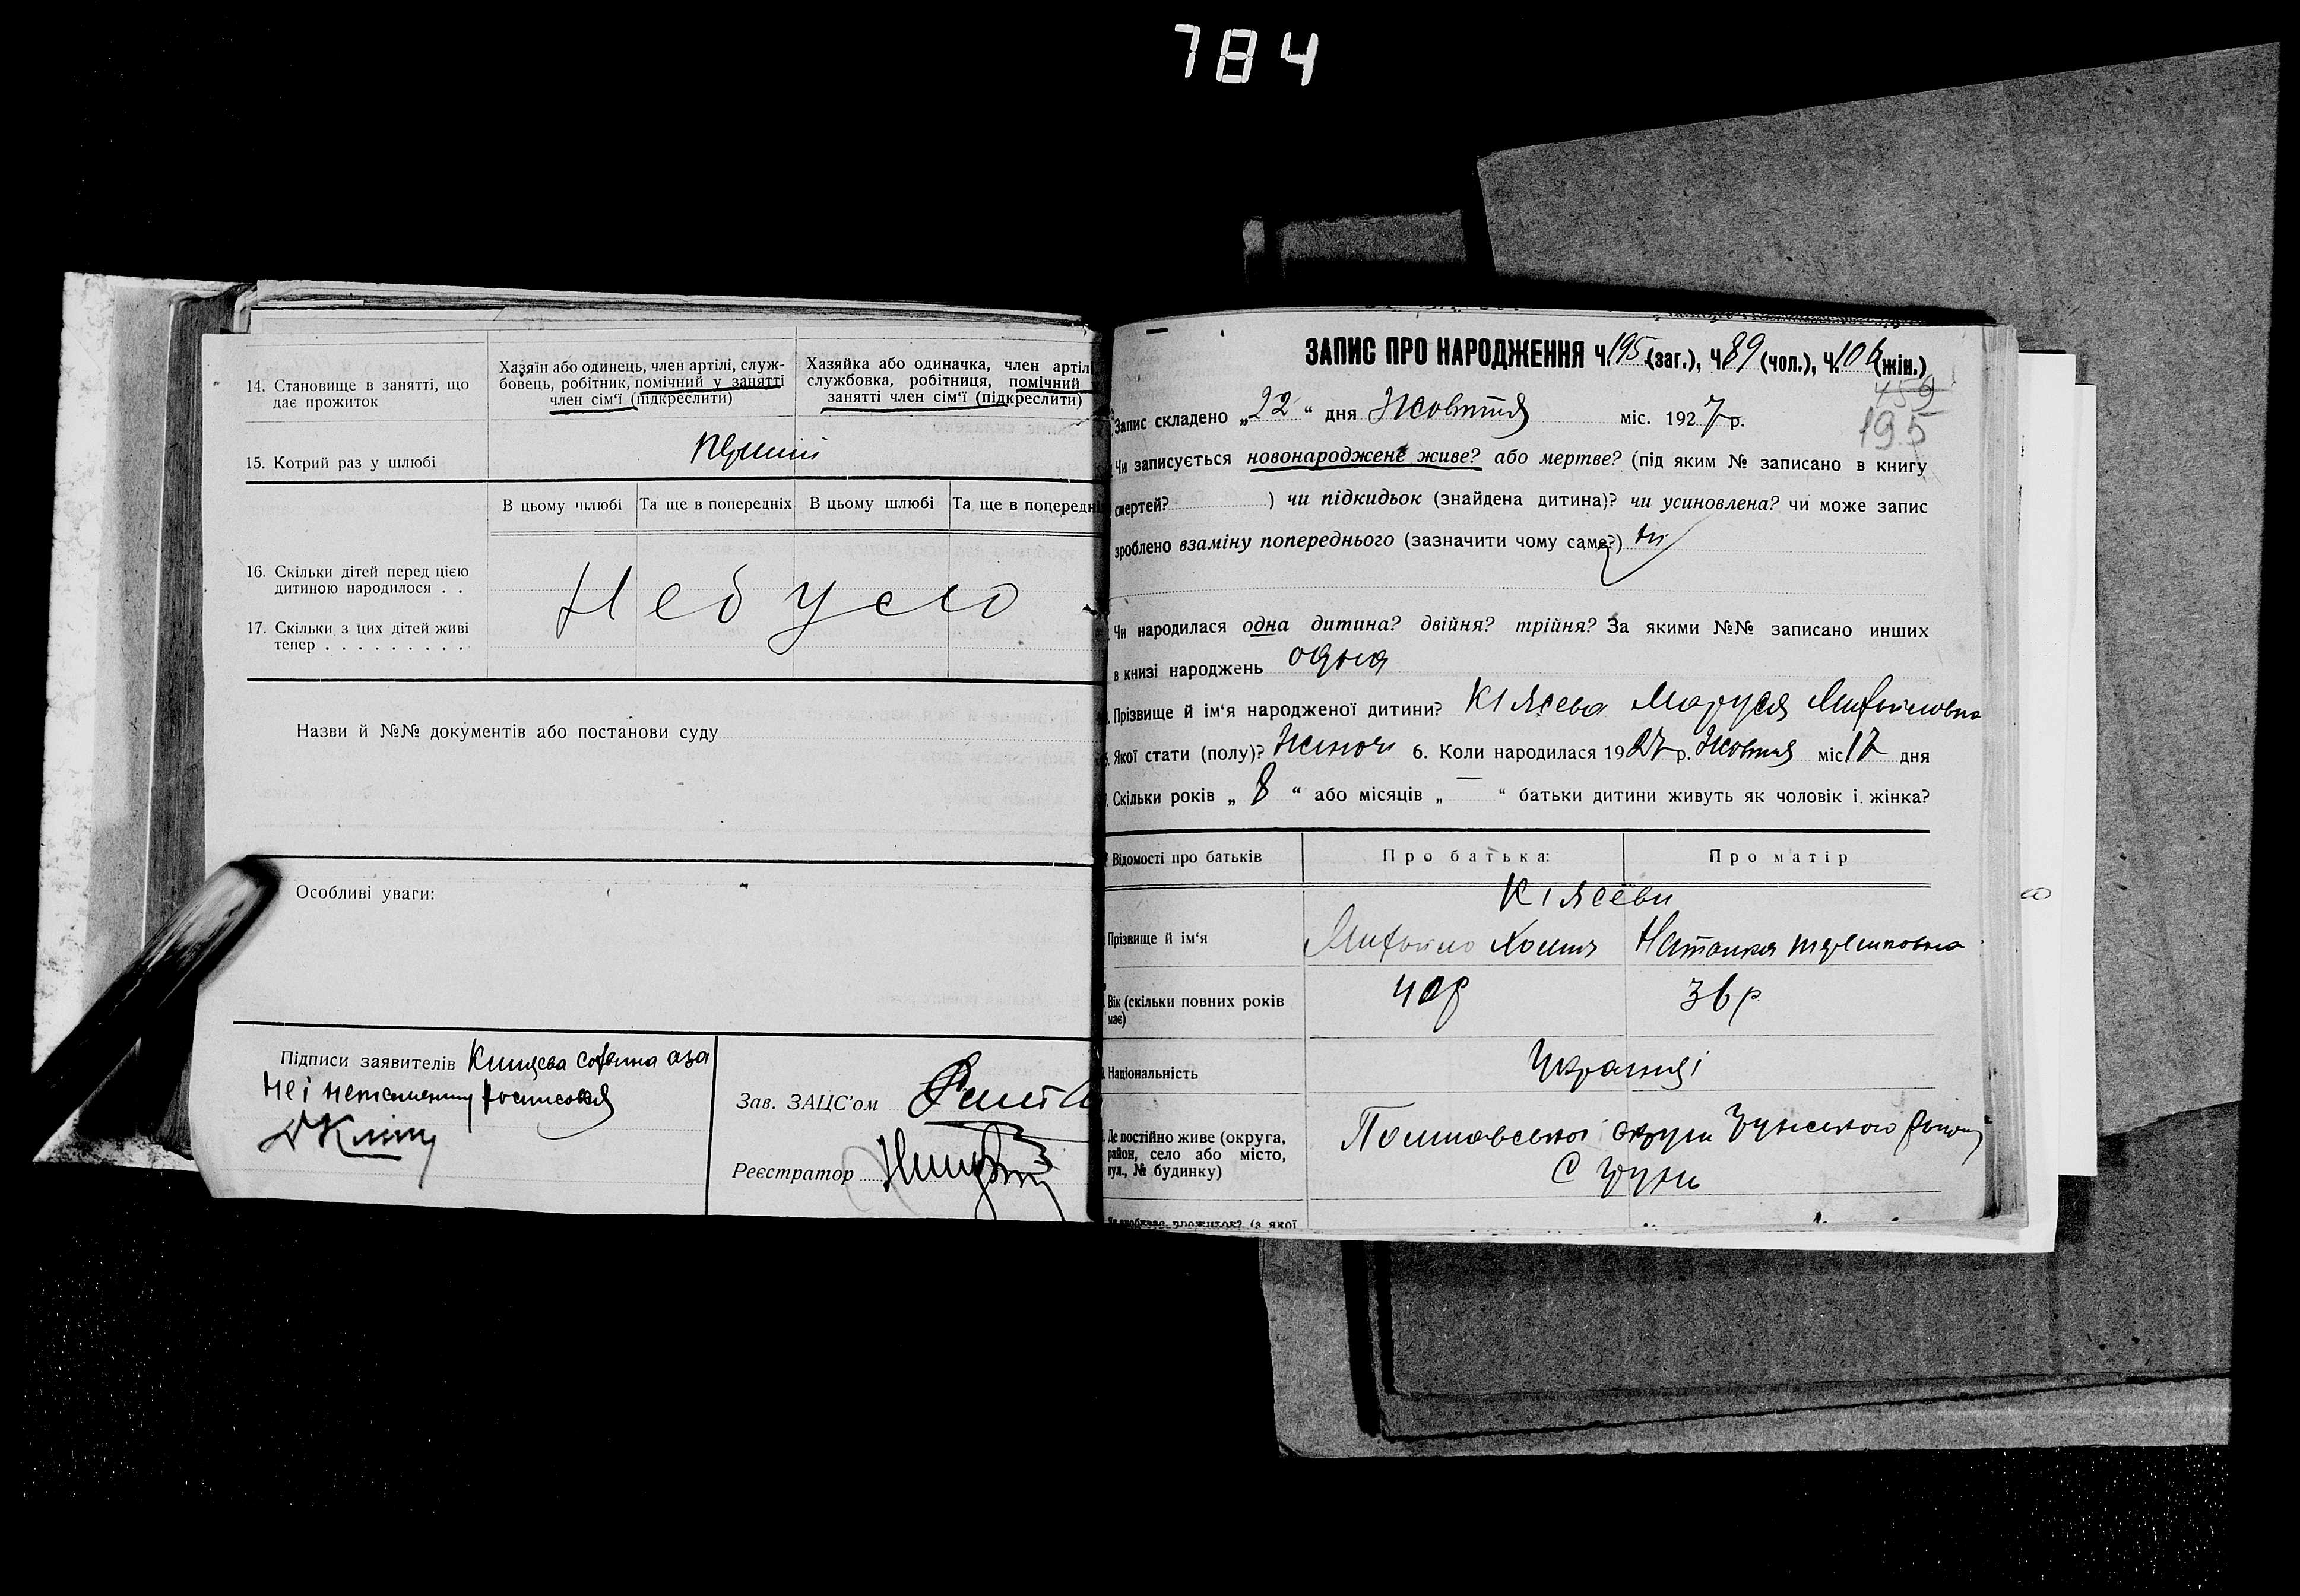 784
14. Становище в занятті, що дає прожиток
Хазяїн або одинець, член артілі, служ-
бовець, робітник, помічний у занятті
член сім'ї (підкреслити)
Хазяйка або одиначка, член артіл
службовка, робітниця, помічний
занятті член сім'ї (підкреслити)
15. Котрий раз у шлюбі
В цьому шлюбі Та ще в попередніх В цьому шлюбі Та ще в попередні
16. Скільки дітей перед цією
дитиною народилося . .
Не було
17. Скільки з цих дітей живі
тепер . . . . . . . . .
Назви й №№ документів або постанови суду
Особливі уваги:
Підписи заявителів
Зав. ЗАЦС'ом
Реєстратор
ЗАПИС ПРО НАРОДЖЕННЯ Ч. 195 (заг.), Ч. 89 (чол.), Ч. 106 (жін.)
459
195
Запис складено „22“ дня Жовтня міс. 1927 р.
Чи записується новонароджене живе? або мертве? (під яким № записано в книгу
смертей? ) чи підкидьок (знайдена дитина)? чи усиновлена? чи може запис
зроблено взаміну попереднього (зазначити чому саме?) ні
Чи народилася одна дитина? двійня? трійня? За якими №№ записано инших
в книзі народжень одна
Прізвище й ім'я народженої дитини? Кіяєева Маруся Михайловна
Якої стати (полу)? Жіноч 6. Коли народилася 1927 р. Жовтня міс 17 дня
Скільки років „ 8 “ або місяців „ — “ батьки дитини живуть як чоловік і жінка?
Відомості про батьків Про батька: Про матір
Прізвище й ім'я
Михайло Хомич Наталка
Вік (скільки повних років
має)
40р 36р
Національність
Українці
Де постійно живе (округа,
район, село або місто,
вул., № будинку)
Полтавської округи Грунського району
С Грунь
прожиток? (з якої